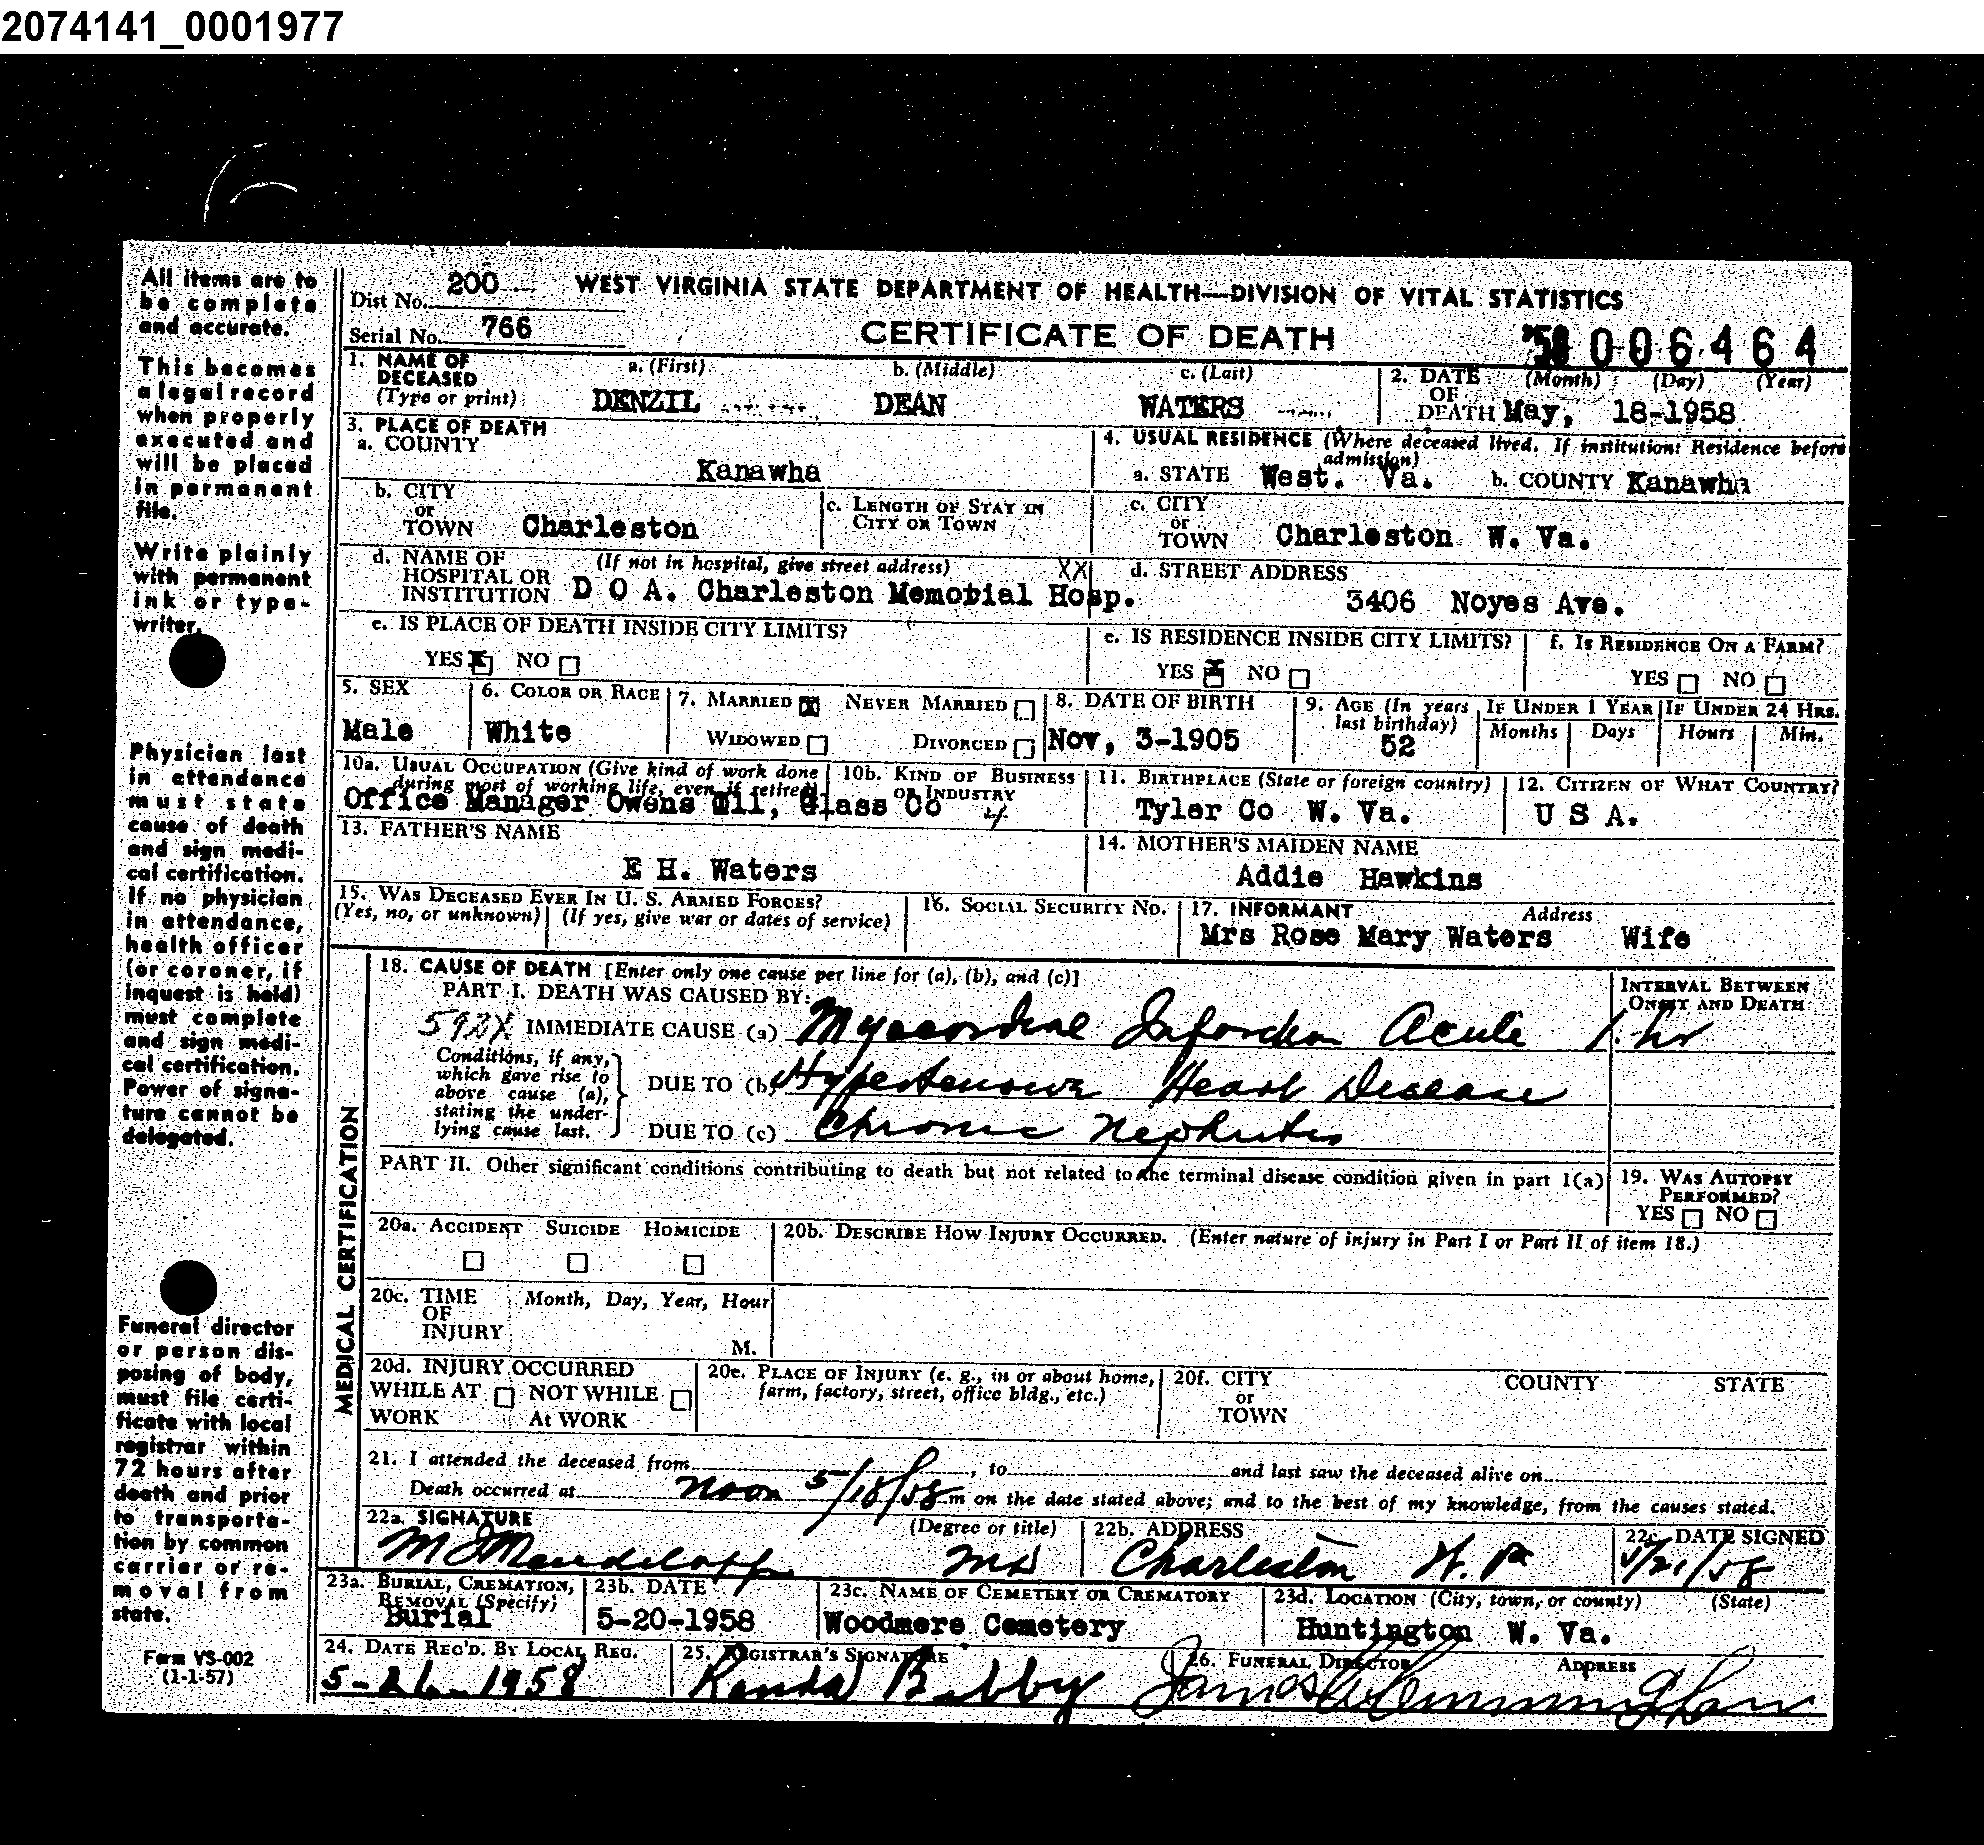 2074141_0001977
All items are to be complete and accurate.
This becomes a legal record when properly executed and will be placed in permanent file.
Write plainly with permanent ink or typewriter.
Physician last in attendance must state cause of death and sign medical certification. If no physician in attendance, health officer (or coroner, if inquest is held) must complete and sign medical certification. Power of signature cannot be delegated.
Funeral director or person disposing of body, must file certificate with local registrar within 72 hours after death and prior to transportation by common carrier or removal from state.
Form VS-002
(1-1-57)
Dist No. 200 WEST VIRGINIA STATE DEPARTMENT OF HEALTH—DIVISION OF VITAL STATISTICS
Serial No. 766 CERTIFICATE OF DEATH 58 006464
1. NAME OF DECEASED (Type or print) a. (First) DENZIL b. (Middle) DEAN c. (Last) WATERS
2. DATE OF DEATH (Month) (Day) (Year) May, 18-1958
3. PLACE OF DEATH
a. COUNTY Kanawha
4. USUAL RESIDENCE (Where deceased lived. If institution: Residence before admission)
a. STATE West. Va. b. COUNTY Kanawha
b. CITY or TOWN Charleston c. LENGTH OF STAY IN CITY OR TOWN
c. CITY or TOWN Charleston W. Va.
d. NAME OF HOSPITAL OR INSTITUTION (If not in hospital, give street address) XX D O A. Charleston Memorial Hosp.
d. STREET ADDRESS 3406 Noyes Ave.
e. IS PLACE OF DEATH INSIDE CITY LIMITS? YES X NO
e. IS RESIDENCE INSIDE CITY LIMITS? YES X NO
f. IS RESIDENCE ON A FARM? YES NO
5. SEX Male
6. COLOR OR RACE White
7. MARRIED X NEVER MARRIED WIDOWED DIVORCED
8. DATE OF BIRTH Nov, 3-1905
9. AGE (In years last birthday) 52 IF UNDER 1 YEAR Months Days IF UNDER 24 HRS. Hours Min.
10a. USUAL OCCUPATION (Give kind of work done during most of working life, even if retired) 10b. KIND OF BUSINESS OR INDUSTRY
Office Manager Owens Ill, Glass Co 4
11. BIRTHPLACE (State or foreign country) Tyler Co W. Va.
12. CITIZEN OF WHAT COUNTRY? U S A.
13. FATHER'S NAME E H. Waters
14. MOTHER'S MAIDEN NAME Addie Hawkins
15. WAS DECEASED EVER IN U. S. ARMED FORCES? (Yes, no, or unknown) (If yes, give war or dates of service)
16. SOCIAL SECURITY NO.
17. INFORMANT Address Mrs Rose Mary Waters Wife
MEDICAL CERTIFICATION
18. CAUSE OF DEATH [Enter only one cause per line for (a), (b), and (c)]
INTERVAL BETWEEN ONSET AND DEATH
PART I. DEATH WAS CAUSED BY:
592X IMMEDIATE CAUSE (a) Myocordial Infarction Acute 1. hr
Conditions, if any, which gave rise to above cause (a), stating the underlying cause last.
DUE TO (b) Hypertensive Heart Disease
DUE TO (c) Chronic Nephritis
PART II. Other significant conditions contributing to death but not related to the terminal disease condition given in part I(a)
19. WAS AUTOPSY PERFORMED? YES NO
20a. ACCIDENT SUICIDE HOMICIDE
20b. DESCRIBE HOW INJURY OCCURRED. (Enter nature of injury in Part I or Part II of item 18.)
20c. TIME OF INJURY Month, Day, Year, Hour M.
20d. INJURY OCCURRED WHILE AT WORK NOT WHILE At WORK
20e. PLACE OF INJURY (e. g., in or about home, farm, factory, street, office bldg., etc.)
20f. CITY or TOWN COUNTY STATE
21. I attended the deceased from , to and last saw the deceased alive on
Death occurred at noon 5/18/58 m on the date stated above; and to the best of my knowledge, from the causes stated.
22a. SIGNATURE (Degree or title) MD
22b. ADDRESS Charleston W. Va
22c. DATE SIGNED 5/21/58
23a. BURIAL, CREMATION, REMOVAL (Specify) Burial
23b. DATE 5-20-1958
23c. NAME OF CEMETERY OR CREMATORY Woodmere Cemetery
23d. LOCATION (City, town, or county) (State) Huntington W. Va.
24. DATE REC'D. BY LOCAL REG. 5-26-1958
25. REGISTRAR'S SIGNATURE
26. FUNERAL DIRECTOR ADDRESS James Cunningham